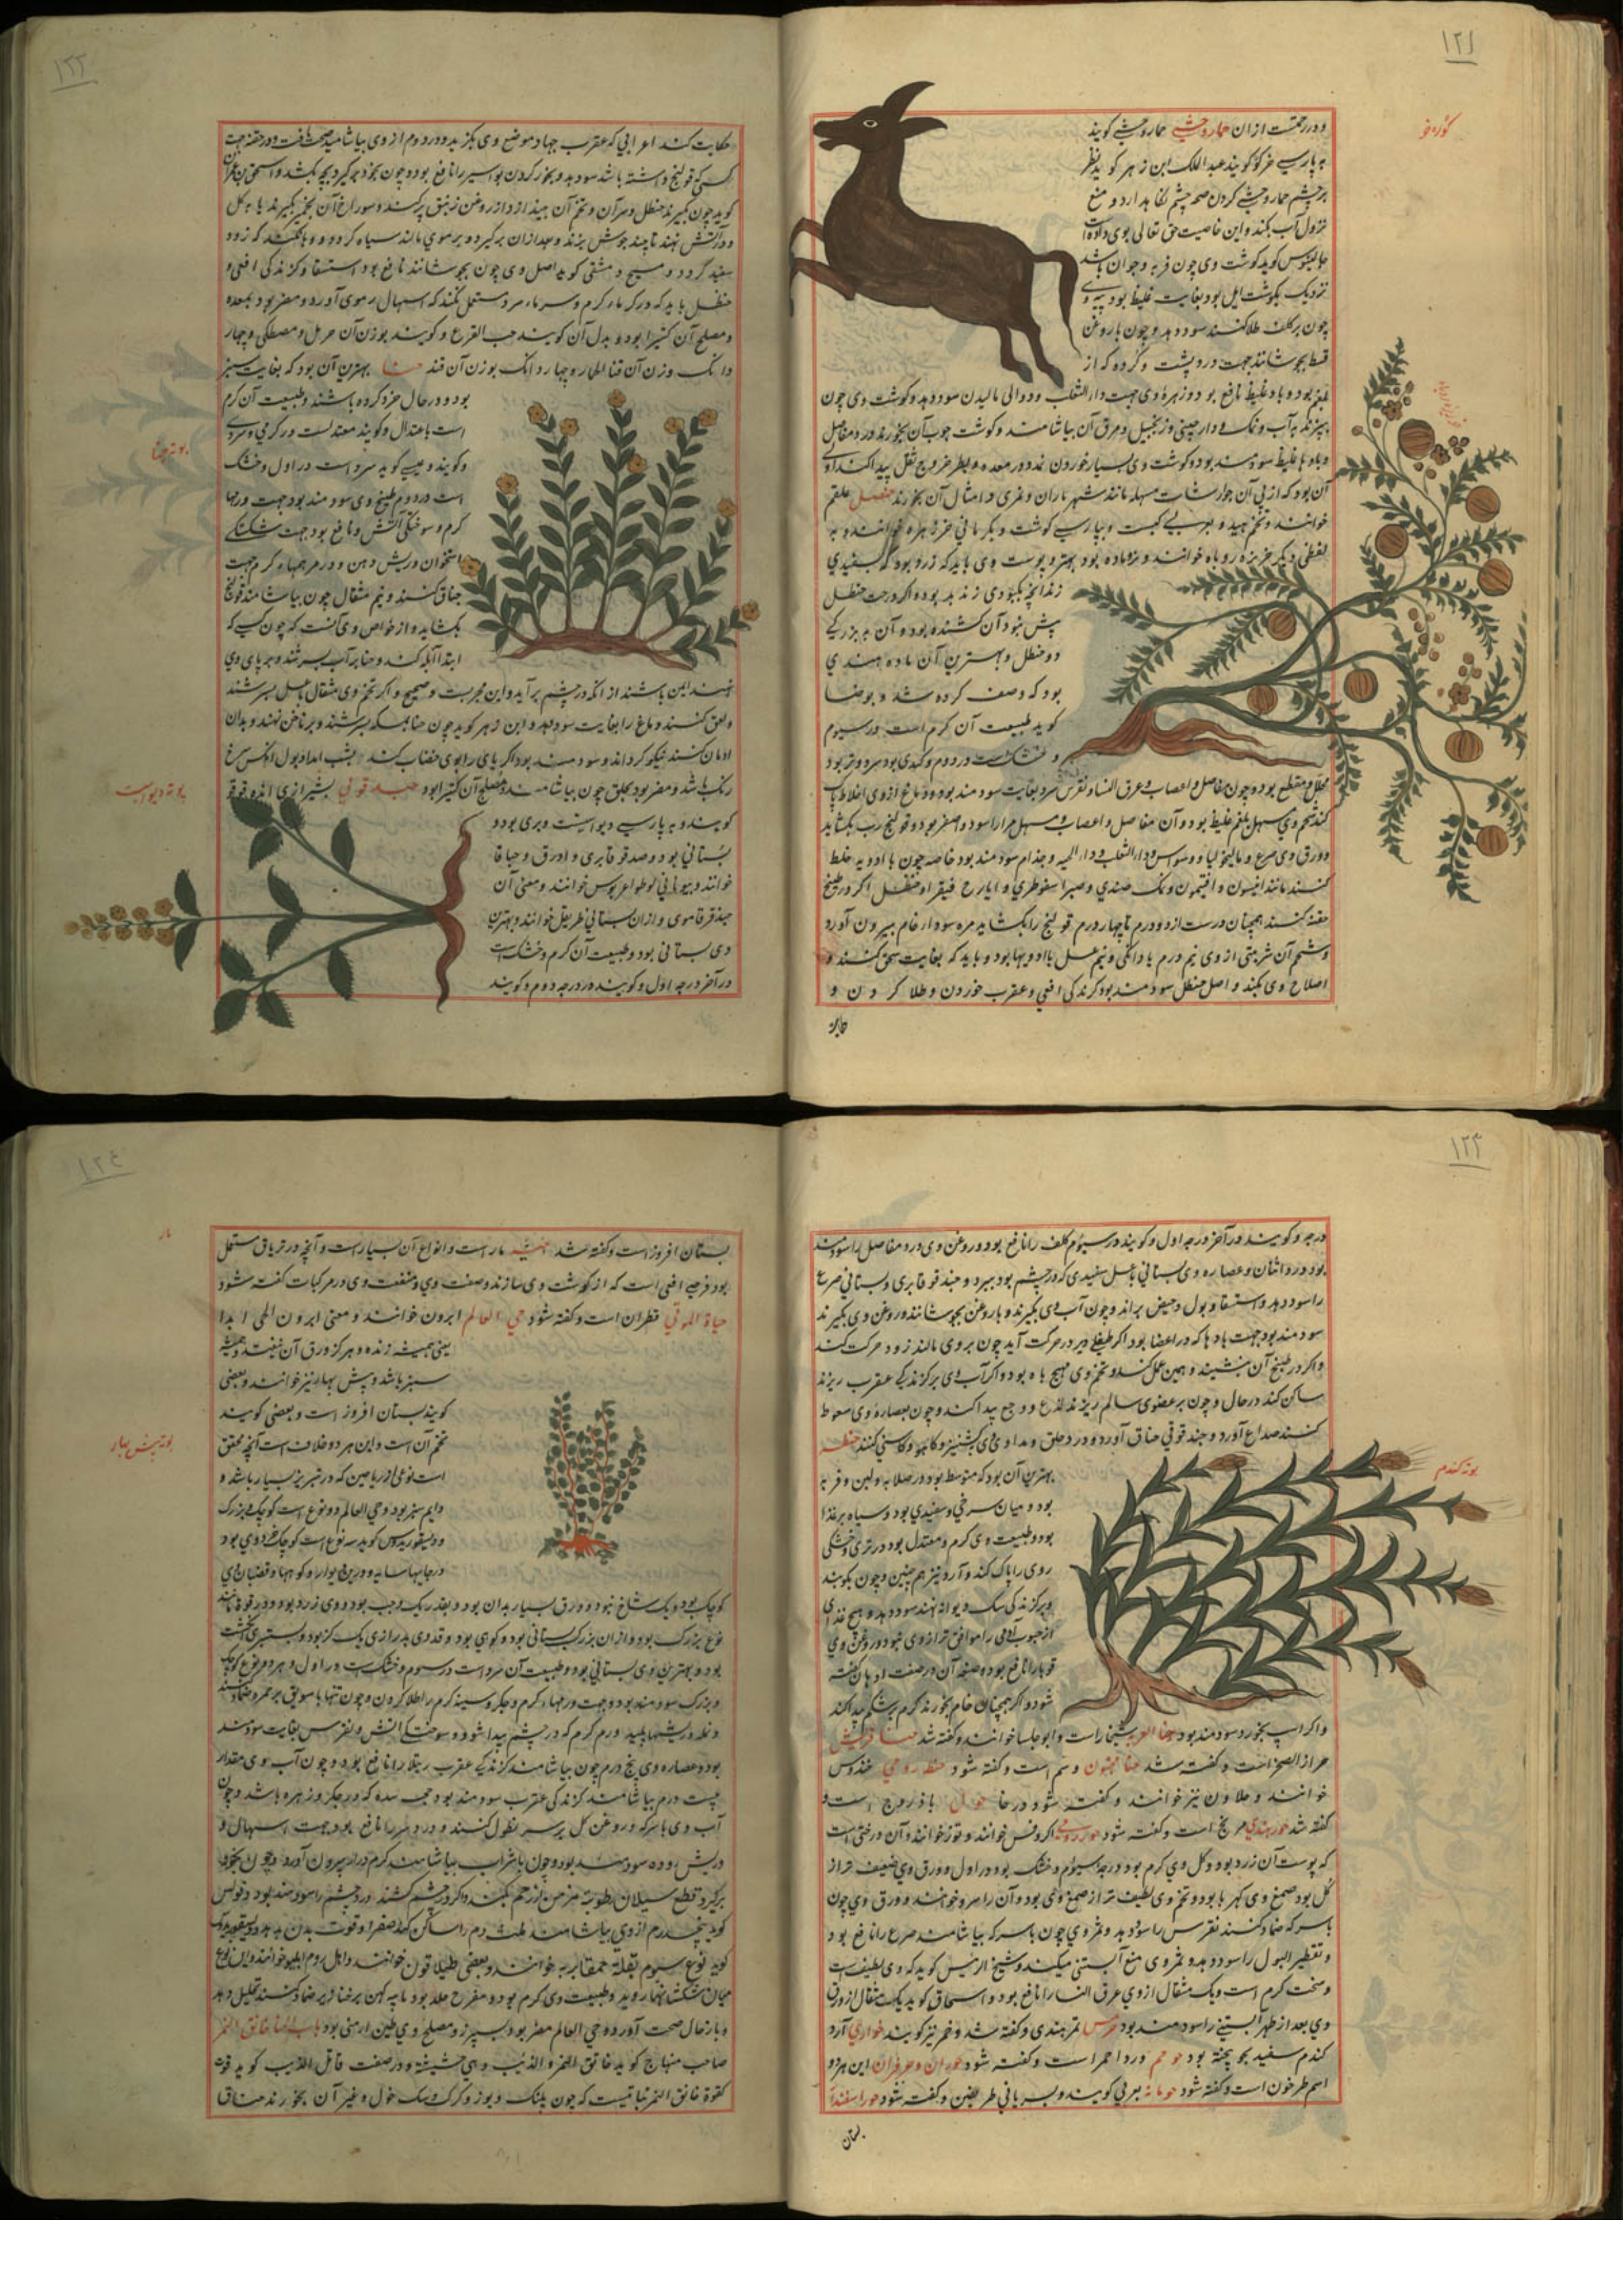 ١٢١
و در زحمتست از ان حمار وحشی حمار وحشی کویند
به پارسی خرکور کویند عبد الملک ابن زهر کوید نظر
بر چشم حمار وحشی کردن صحه چشم نکاهدارد و منع
نزول آب بکند و این خاصیت حق تعالی بوی داده است
جالینوس کوید کوشت وی چون فربه و جوان باشد
نزدیک بکوشت ایل بود بغایت غلیظ بود پیه وی
چون بر کلف طلا کنند سود دهد و چون با روغن
قسط بجوشانند جهت درد پشت و کرده که از
بلغم بود و باد غلیظ نافع بود و زهره وی جهت داء الثعلب و دوالی مالیدن سود دهد و کوشت وی چون
بپزند به آب و نمک و دار چینی و زنجبیل و مرق آن بیاشامند و کوشت چوب آن بخورند درد مفاصل
و بادها غلیظ سودمند بود و کوشت وی بسیار خوردن
آن بود که از پی آن جوارشات مسهله مانند شهریاران و تمری و امثال آن بخورند حنظل علقم
خوانند و به
لفظی دیکر خربزه روباه خوانند و نر و ماده بود بهتر و پوست وی باید که زرد بود که بسفیدی
زند آنچه بکبودی زند بد بود و اکر درخت حنظل
پیش نبود آن کشنده بود و آن به بزرکی
دو حنظل و بهترین آن ماده هندی
بود که وصف کرده شد و بوحنا
کوید طبیعت آن کرم است در سیوم
و خشکست در دوم و کندی بود سرد و تر بود
محلل و مقطع بود و چون مفاصل و اعصاب و عرق النسا و نقرس سرد بغایت سودمند بود و دماغ از وی اخلاط پاک
کند شحم وی مسهل بلغم غلیظ بود و آن مفاصل و اعصاب و مسهل مرار اسود و اصفر بود و قولنج رب بکشاید
و ورق وی صرع و مالیخولیا و وسواس و داء الثعلب و داء الحیه و جذام سودمند بود خاصه چون با ادویه خلط
کنند مانند انیسون و افتیمون و نمک هندی و صبر اسقوطری و ایارج فیقرا و حنظل اکر در طبیخ
حقنه کنند همچنان درست از دو درم تا چهار درم قولنج را بکشاید مره سودا و خام بیرون آورد
و شحم آن شربتی از وی نیم درم یا دانکی و نیم عسل با ادویها بود و باید که بغایت سحق کنند و
اصلاح وی بکند و اصل حنظل سودمند بود کزندکی افعی و عقرب خوردن و طلا کردن و
١٢٢
حکایت کند اعرابی که عقرب چهار موضع وی بکزید و دو درم از وی بیاشامید صحت یافت و در حقنه جهت
کسی که قولنج داشته باشد سود دهد و بخور کردن بواسیر را نافع بود و چون بخود برکیرد بچه بکشد و اسحق بن عمران
کوید چون بکیرند حنظل و سر آن و تخم آن بیندازد از روغن زنبق پر کنند و سوراخ آن بخمیر بکیرند یا به کل
و در آتش نهند تا چند جوش بزند و بعد از ان برکیرد و بر موی مالند سیاه کردد
سفید کردد و مسیح دمشقی کوید اصل وی چون بجوشانند نافع بود استسقا و کزندکی افعی و
حنظل باید که در کرماء کرم و سرماء سرد مستعمل نکنند که اسهال دموی آورد و مضر بود بمعده
و مصلح آن کثیرا بود و بدل آن کویند حب القرع و کویند بوزن آن حرمل و مصطکی و چهار
دانک وزن آن قثاء الحمار و چهار دانک بوزن آن قند حنا بهترین آن بود که بغایت سبز
بود و در حال خرد کرده باشند و طبیعت آن کرم
است باعتدال و کویند معتدلست در کرمی و سردی
و کویند و عیسی کوید سرد است در اول و خشک
است در دوم طبیخ وی سودمند بود جهت ورمها
کرم و سوختکی آتش و نافع بود جهت شکستکی
استخوان و ریش دهن و ورمها کرم و جهت
خناق کنند و نیم مثقال چون بیاشامند قولنج
بکشاید و از خواص وی آنست که چون کسی که
ابتدا آبله کند و حنا به آب بسرشند و بر پای وی
نهند ایمن باشند از آنکه در چشم برآید و این مجربست و صحیح و اکر تخم وی مثقال با عسل بسرشند
و لعق کنند دماغ را بغایت سود دهد و ابن زهر کوید چون حنا بسرکه بسرشند و بر ناخن نهند و بدان
ادمان کنند نیکو کرداند و سودمند بود اکر پای را بوی خضاب کنند بشب امداد بول آنکس سرخ
رنک باشد و مضر بود بحلق چون بیاشامند و مصلح آن کثیرا بود حندقوقی بشیرازی انده قوقو
کویند و به پارسی دیواسپست و بری بود و
بستانی بود و صد قوقا بری و ادرق و حباقا
خوانند و بیونانی لوطوا غریوس خوانند و معنی آن
حند قوقا موی و از ان بستانی طریفلن خوانند و بهترین
وی بستانی بود و طبیعت آن کرم و خشکست
در آخر درجه اول و کویند در درجه دوم و کویند
بوته حنا
بوته دیواسپست
١٢٣
درجه و کویند در آخر درجه اول و کویند در سیوم کلف را نافع بود و روغن وی درد مفاصل را سودمند
بود و درد انثیان و عصاره وی بستانی با عسل سفیدی که در چشم بود ببرد و حندقوقا بری و بستانی صرع
را سود دهد و استسقا و بول و حیض براند و چون آب وی بکیرند و با روغن بجوشانند و روغن وی بکیرند
سودمند بود جهت بادها که در اعضا بود اکر طفلی دیر در حرکت آید چون بر وی مالند زود حرکت کند
و اکر در طبیخ آن بنشیند و همین عمل کند و تخم وی مهیج باه بود و اکر آب وی بر کزندکی عقرب ریزند
ساکن کند در حال و چون بر عضوی سالم ریزند لذع و وجع پیدا کند و چون بعصاره وی سعوط
کنند صداع آورد و حندقوقی خناق آورد و درد حلق و مداوای وی بکشنیز و کاهو و کاسنی کنند حنطه
بهترین آن بود که متوسط بود در صلابه و لین و فربه
بود و میان سرخی و سفیدی بود و سیاه بر غذا
بود و طبیعت وی کرم و معتدل بود در تری و خشکی
روی را پاک کند و آرد نیز همچنین و چون بکوبند
و بر کزندکی سک دیوانه نهند سود دهد و هیچ غذای
از حبوب آدمی را موافق تر از وی نبود و روغن وی
قوبا را نافع بود و صفت آن در صفت ادهان کفته
شود و اکر همچنان خام بخورند کرم در شکم پیدا کند
و اکر اسپ بخورد سودمند بود حنا الغربه شنجار است و ابو جلسا خوانند و کفته شد حنا قریش
حزاز الصخر است و کفته شد حنا مجنون وسم است و کفته شود حنطه رومی خندروس
خوانند و حلاون نیز خوانند و کفته شود در خا حوک باذروج است و
کفته شد حور هندی مرنج است و کفته شود حور رومی اکروفس خوانند و توز خوانند و آن درختی است
که پوست آن زرد بود و کل وی کرم بود درجه سیوم و خشک بود در اول و ورق وی ضعیف تر از
کل بود صمغ وی کهربا بود و تخم وی لطیف تر از صمغ وی بود و آن را مرو خوانند و ورق وی چون
با سرکه ضماد کنند نقرس را سود دهد و ثمر وی چون با سرکه بیاشامند صرع را نافع بود
و تقطیر البول را سود دهد و ثمر وی منع آبستنی میکند و شیخ الرئیس کوید که وی لطیف است
و سخت کرم است و یک مثقال از وی عرق النسا را نافع بود و اسحاق کوید یک مثقال از ورق
وی بعد از طهر آبستنی را سودمند بود حومر تمر هندی و کفته شد و خمر نیز کویند حواری آرد
کندم سفید بجو پخته بود حوجم ورد احمر است و کفته شود حوران و حرفران این هر دو
اسم طرخون است و کفته شود حومانه بعربی کویند و بسریانی طریفلن و کفته شود حورا سفند
بستان
بوته کندم
١٢٤
بستان افروز است و کفته شد حیه مار است و انواع آن بسیار است و آنچه در تریاق مستعمل
بود قرصی افعی است که از کوشت وی سازند و صفت وی و منفعت وی در مرکبات کفته شود
حیاة الموتی قطران است و کفته شود حی العالم ابرون خوانند و معنی ابرون الحی ابدا
یعنی همیشه زنده و هرکز ورق آن نیفتد و همیشه
سبز باشد و پیش بهار نیز خوانند و بعضی
کویند بستان افروز است و بعضی کویند
تخم آن است و این هر دو خلاف است آنچه محقق
است نوعی از ریاحین که در تبریز بسیار باشد و
دایم سبز بود و حی العالم دو نوع است کوچک و بزرک
و دیسقوریدوس کوید سه نوع است کوچک خرد وی بود
در جایها سایه و در بن دیوار و کوهها و قضبان وی
کوچک بود و یک شاخ نبود و ورق بسیار بدان بود و بقدر یک وجب بود و وی زرد بود و ورق وی مانند
نوع بزرک بود و از ان بزرک بستانی بود و کوهی بود و قد وی بدرازی یک کز بود و بستبری انکشت
بود و بهترین وی بستانی بود و طبیعت آن سرد است در سیوم و خشکست در اول و هر دو نوع کوچک
و بزرک سودمند بود جهت ورمها کرم و جکر و سینه کرم را طلا کردن و چون تنها یا سویق بر حمره ضماد کنند
و نمله و ریشها پلید و ورم کرم که در چشم پیدا شود و سوختکی آتش و نقرس بغایت سودمند
بود و عصاره وی پنج درم چون بیاشامند کزندکی عقرب رتیلا را نافع بود و چون آب وی مقدار
بیست درم بیاشامند کزندکی عقرب سودمند بود جهت سده که در جکر و زهره باشد و چون
آب وی با سرکه و روغن کل بر سر نطول کنند درد سر را نافع بود جهت اسهال و
ریش روده سودمند بود و چون با شراب بیاشامند کرم دراز بیرون آورد و چون بخود
برکیرد قطع سیلان رطوبة مزمن از رحم بکند و اکر در چشم کشند درد چشم را سودمند بود و فولس
کوید پنج درم از وی بیاشامند طمث دم را ساکن کند صفرا و قوت بدن بدهد و دیسقوریدوس
کوید نوع سیوم بقلة حمقا بریه خوانند و بعضی طیلاقون خوانند و اهل روم ایلیو خوانند و این نوع
میان سنکستانها روید و طبیعت وی کرم بود و مقرح جلد بود با پیه کهن بر خنازیر ضماد کنند تحلیل دهد
و باز حال صحت آورد و حی العالم مضر بود بسپرز و مصلح وی طین ارمنی بود باب الخا خانق النمر
صاحب منهاج کوید خانق النمر و الذئب و هی حشیشة و در صفت قاتل الذئب کوید قوت
کقوة خانق النمر نباتیست که چون پلنک و یوز و کرک و سک خوک و غیر آن بخورند خناق
مار